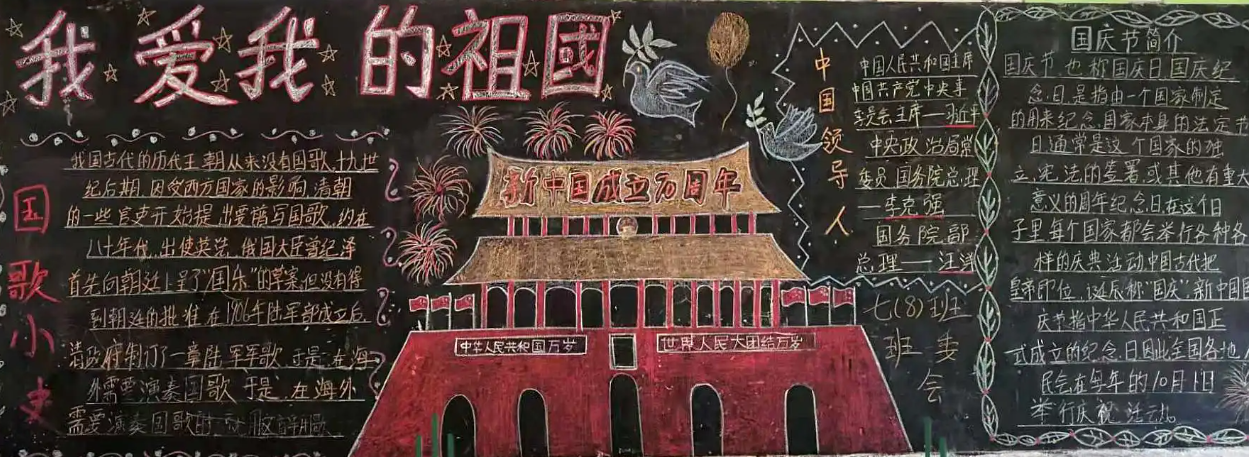 我爱我的祖國
国歌小史
我国古代的历代王朝从来没有国歌.十九世
纪后期,因受西方国家的影响,清朝
的一些官吏开始提出要谱写国歌,约在
八十年代,出使英法、俄国大臣曾纪泽
首先向朝廷上呈了"国乐"的草案,但没有得
到朝廷的批准,在1906年陆军部成立后,
清政府制订了一章陆军军歌,于是,在海
外需要演奏国歌 于是,在海外
需要演奏国歌的
新中国成立70周年
中华人民共和国万岁
世界人民大团结万岁
中国领导人
中国人民共和国主席
中国共产党中央军
委员会主席——习近平
中央政治局常
委员 国务院总理
——李克强
国务院副
总理——汪洋
七(8)班
班委会
国庆节简介
国庆节,也称国庆日国庆纪
念日,是指由一个国家制定
的用来纪念国家本身的法定节
日通常是这个国家的独
立、宪法的签署,或其他有重大
意义的周年纪念日在这个日
子里每个国家都会举行各种各
样的庆典活动中国古代把
皇帝即位,诞辰称"国庆"新中国国
庆节指中华人民共和国正
式成立的纪念日因此全国各地人
民会在每年的10月1日
举行庆祝活动。